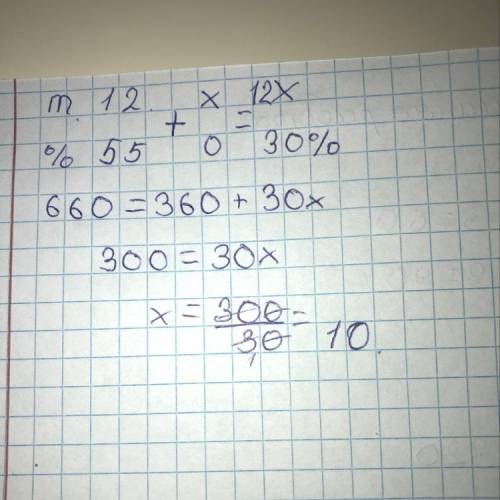 m. 12. + x = 12x
% 55 0 30%
660 = 360 + 30x
300 = 30x
x = 300/30 = 10.